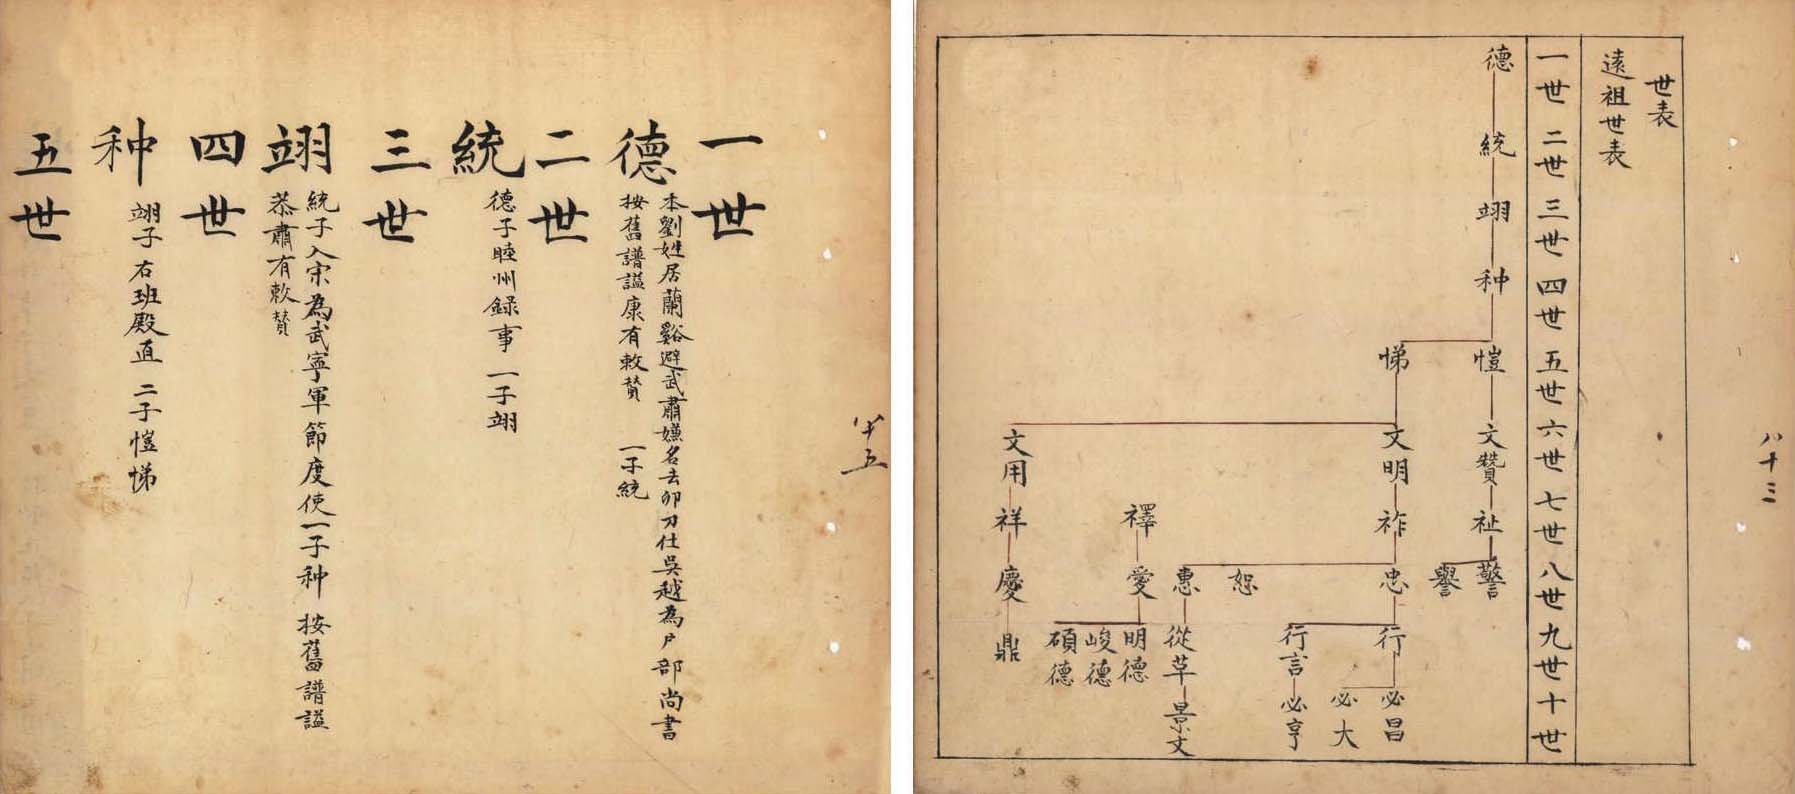 世表
遠祖世表
一世 二世 三世 四世 五世 六世 七世 八世 九世 十世
德 統 翊 种 愷 文贊 祉 警
譽
悌 文明 祚 忠 行 必昌
必大
行言 必亨
恕
惠 從革 景文
禪 愛 明德
峻德
碩德
文用 祥 慶 鼎
八十三
一世
德 本劉姓居蘭谿避武肅嫌名去卯刀仕吳越為戶部尚書
按舊譜謚康有敕贊 一子統
二世
統 德子睦州録事一子翊
三世
翊 統子入宋為武寧軍節度使一子种 按舊譜謚
恭肅有敕贊
四世
种 翊子右班殿直 二子愷悌
五世
八十五